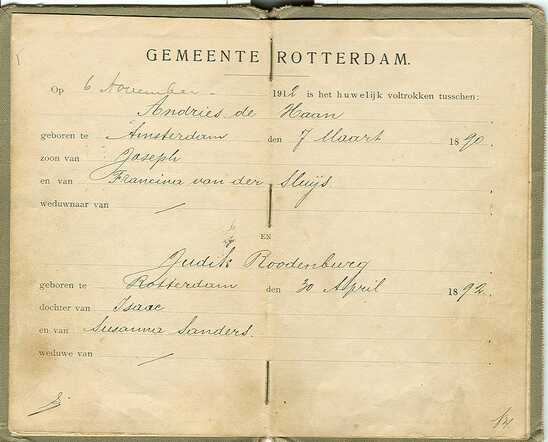 GEMEENTE ROTTERDAM.
Op 6 November 1912 is het huwelijk voltrokken tusschen:
Andries de Haan
geboren te Amsterdam den 7 Maart 1890
zoon van Joseph
en van Francina van der Sluijs
weduwnaar van
EN
Judik Roodenburg
geboren te Rotterdam den 30 April 1892
dochter van Isaac
en van Susanna Sanders.
weduwe van